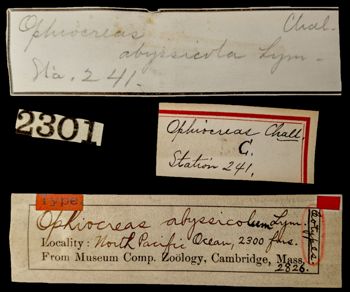 Ophiocreas Chal.
abyssicola Lym.
Sta. 241.
2301
Ophiocreas Chall.
C.
Station 241.
Type
Ophiocreas abyssicolum Lym.
Locality: North Pacific Ocean, 2300 fms.
From Museum Comp. Zoölogy, Cambridge, Mass.
2826.
Cotypes.